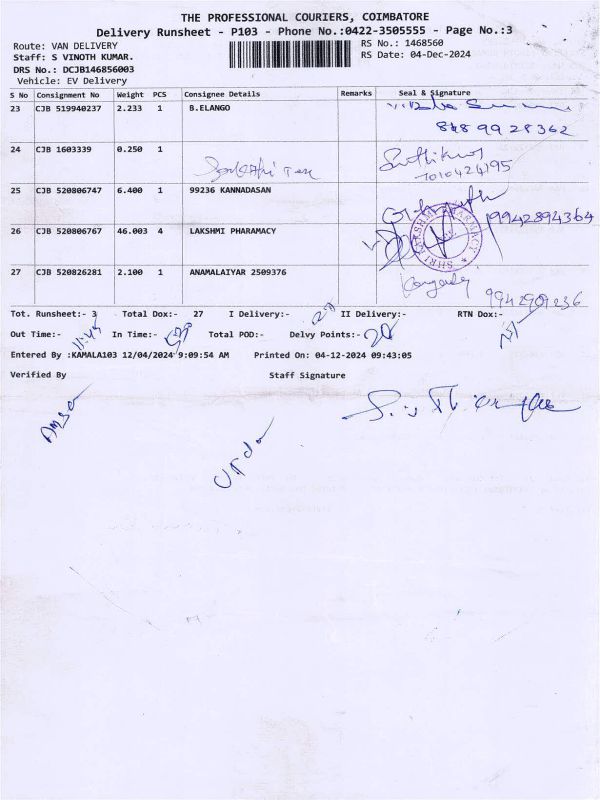 THE PROFESSIONAL COURIERS, COIMBATORE
Delivery Runsheet - P103 - Phone No.:0422-3505555 - Page No.:3
Route: VAN DELIVERY
RS No.: 1468560
Staff: S VINOTH KUMAR.
RS Date: 04-Dec-2024
DRS No.: DCJB146856003
Vehicle: EV Delivery
S No Consignment No Weight PCS Consignee Details Remarks Seal & Signature
23 CJB 519940237 2.233 1 B.ELANGO
8489928362
24 CJB 1603339 0.250 1
25 CJB 520806747 6.400 1 99236 KANNADASAN
19942894364
26 CJB 520806767 46.003 4 LAKSHMI PHARAMACY
SHRI LAKSHMI PHARMACY
27 CJB 520826281 2.100 1 ANAMALAIYAR 2509376
9942909236
Tot. Runsheet:- 3 Total Dox:- 27 I Delivery:- 27 II Delivery:- RTN Dox:-
Out Time:- 11:45 In Time:- Total POD:- Delvy Points:-
Entered By :KAMALA103 12/04/2024 9:09:54 AM Printed On: 04-12-2024 09:43:05
Verified By Staff Signature